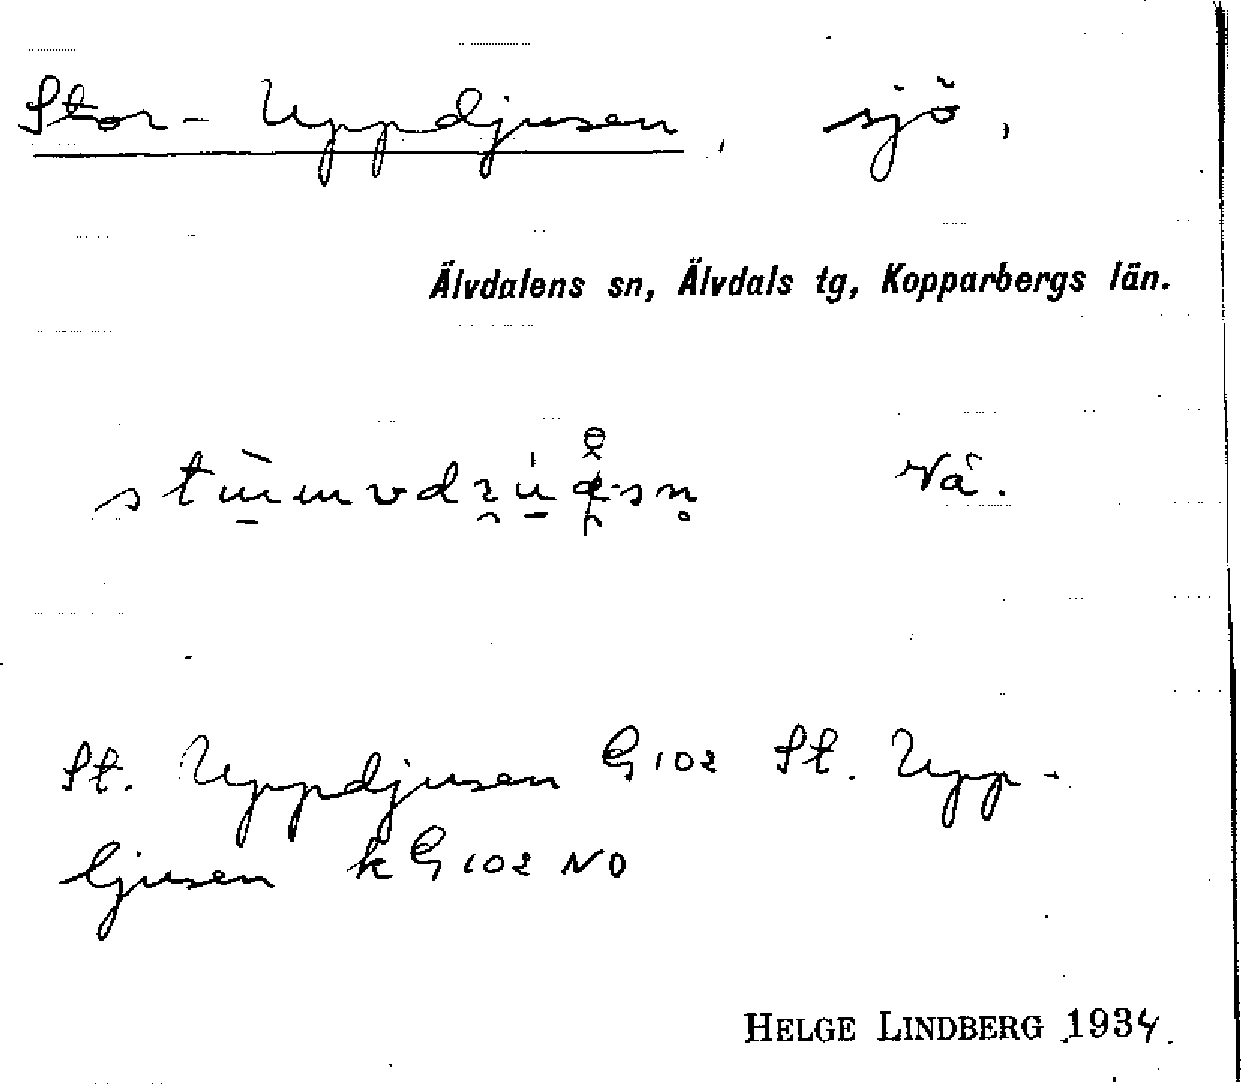 Stor-Uppdjusen, sjö,
Älvdalens sn, Älvdals tg, Kopparbergs län.
Vå.
St. Uppdjusen G 102 St. Upp-
ljusen kG 102 NO
HELGE LINDBERG 1934.